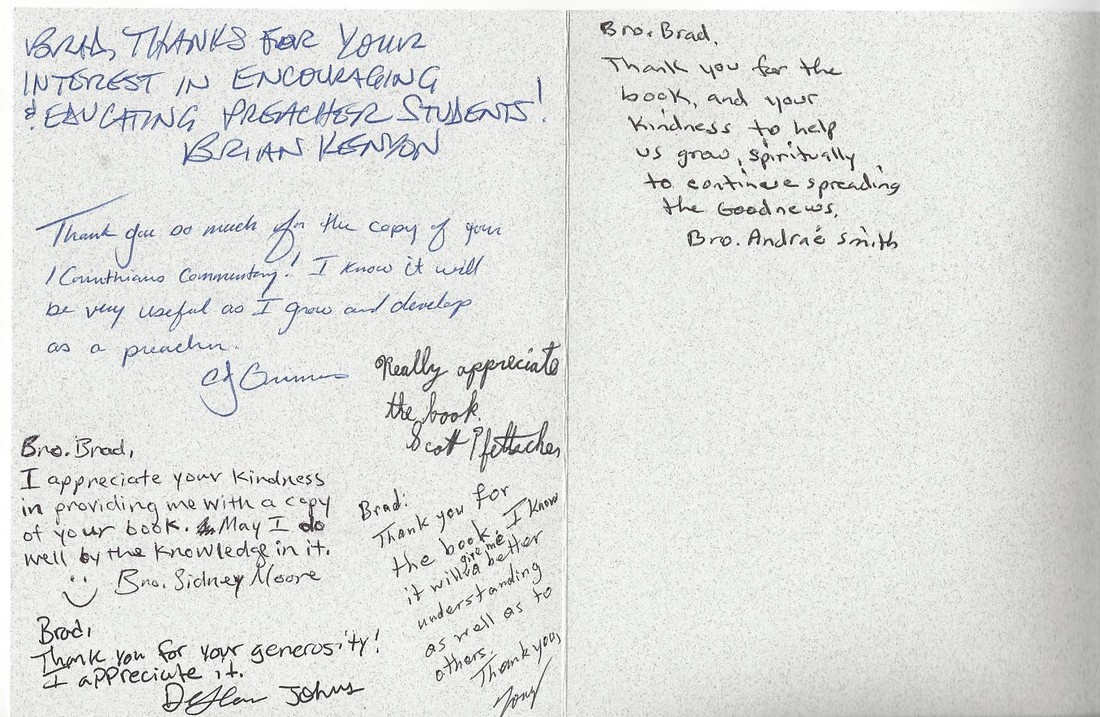 BRAD, THANKS FOR YOUR
INTEREST IN ENCOURAGING
& EDUCATING PREACHER STUDENTS!
BRIAN KENYON
Thank you so much for the copy of your
1 Corinthians Commentary! I know it will
be very useful as I grow and develop
as a preacher.
CJ
Really appreciate
the book.
Scott Pfettscher
Bro. Brad,
I appreciate your kindness
in providing me with a copy
of your book. May I do
well by the knowledge in it.
Bro. Sidney Moore
Brad:
Thank you for
the book. I know
it will give me a better
understanding
as well as to
others.
Thank you,
Tony
Brad,
Thank you for your generosity!
I appreciate it.
Johns
Bro. Brad,
Thank you for the
book, and your
kindness to help
us grow, spiritually,
to continue spreading
the Goodnews.
Bro. Andraé Smith